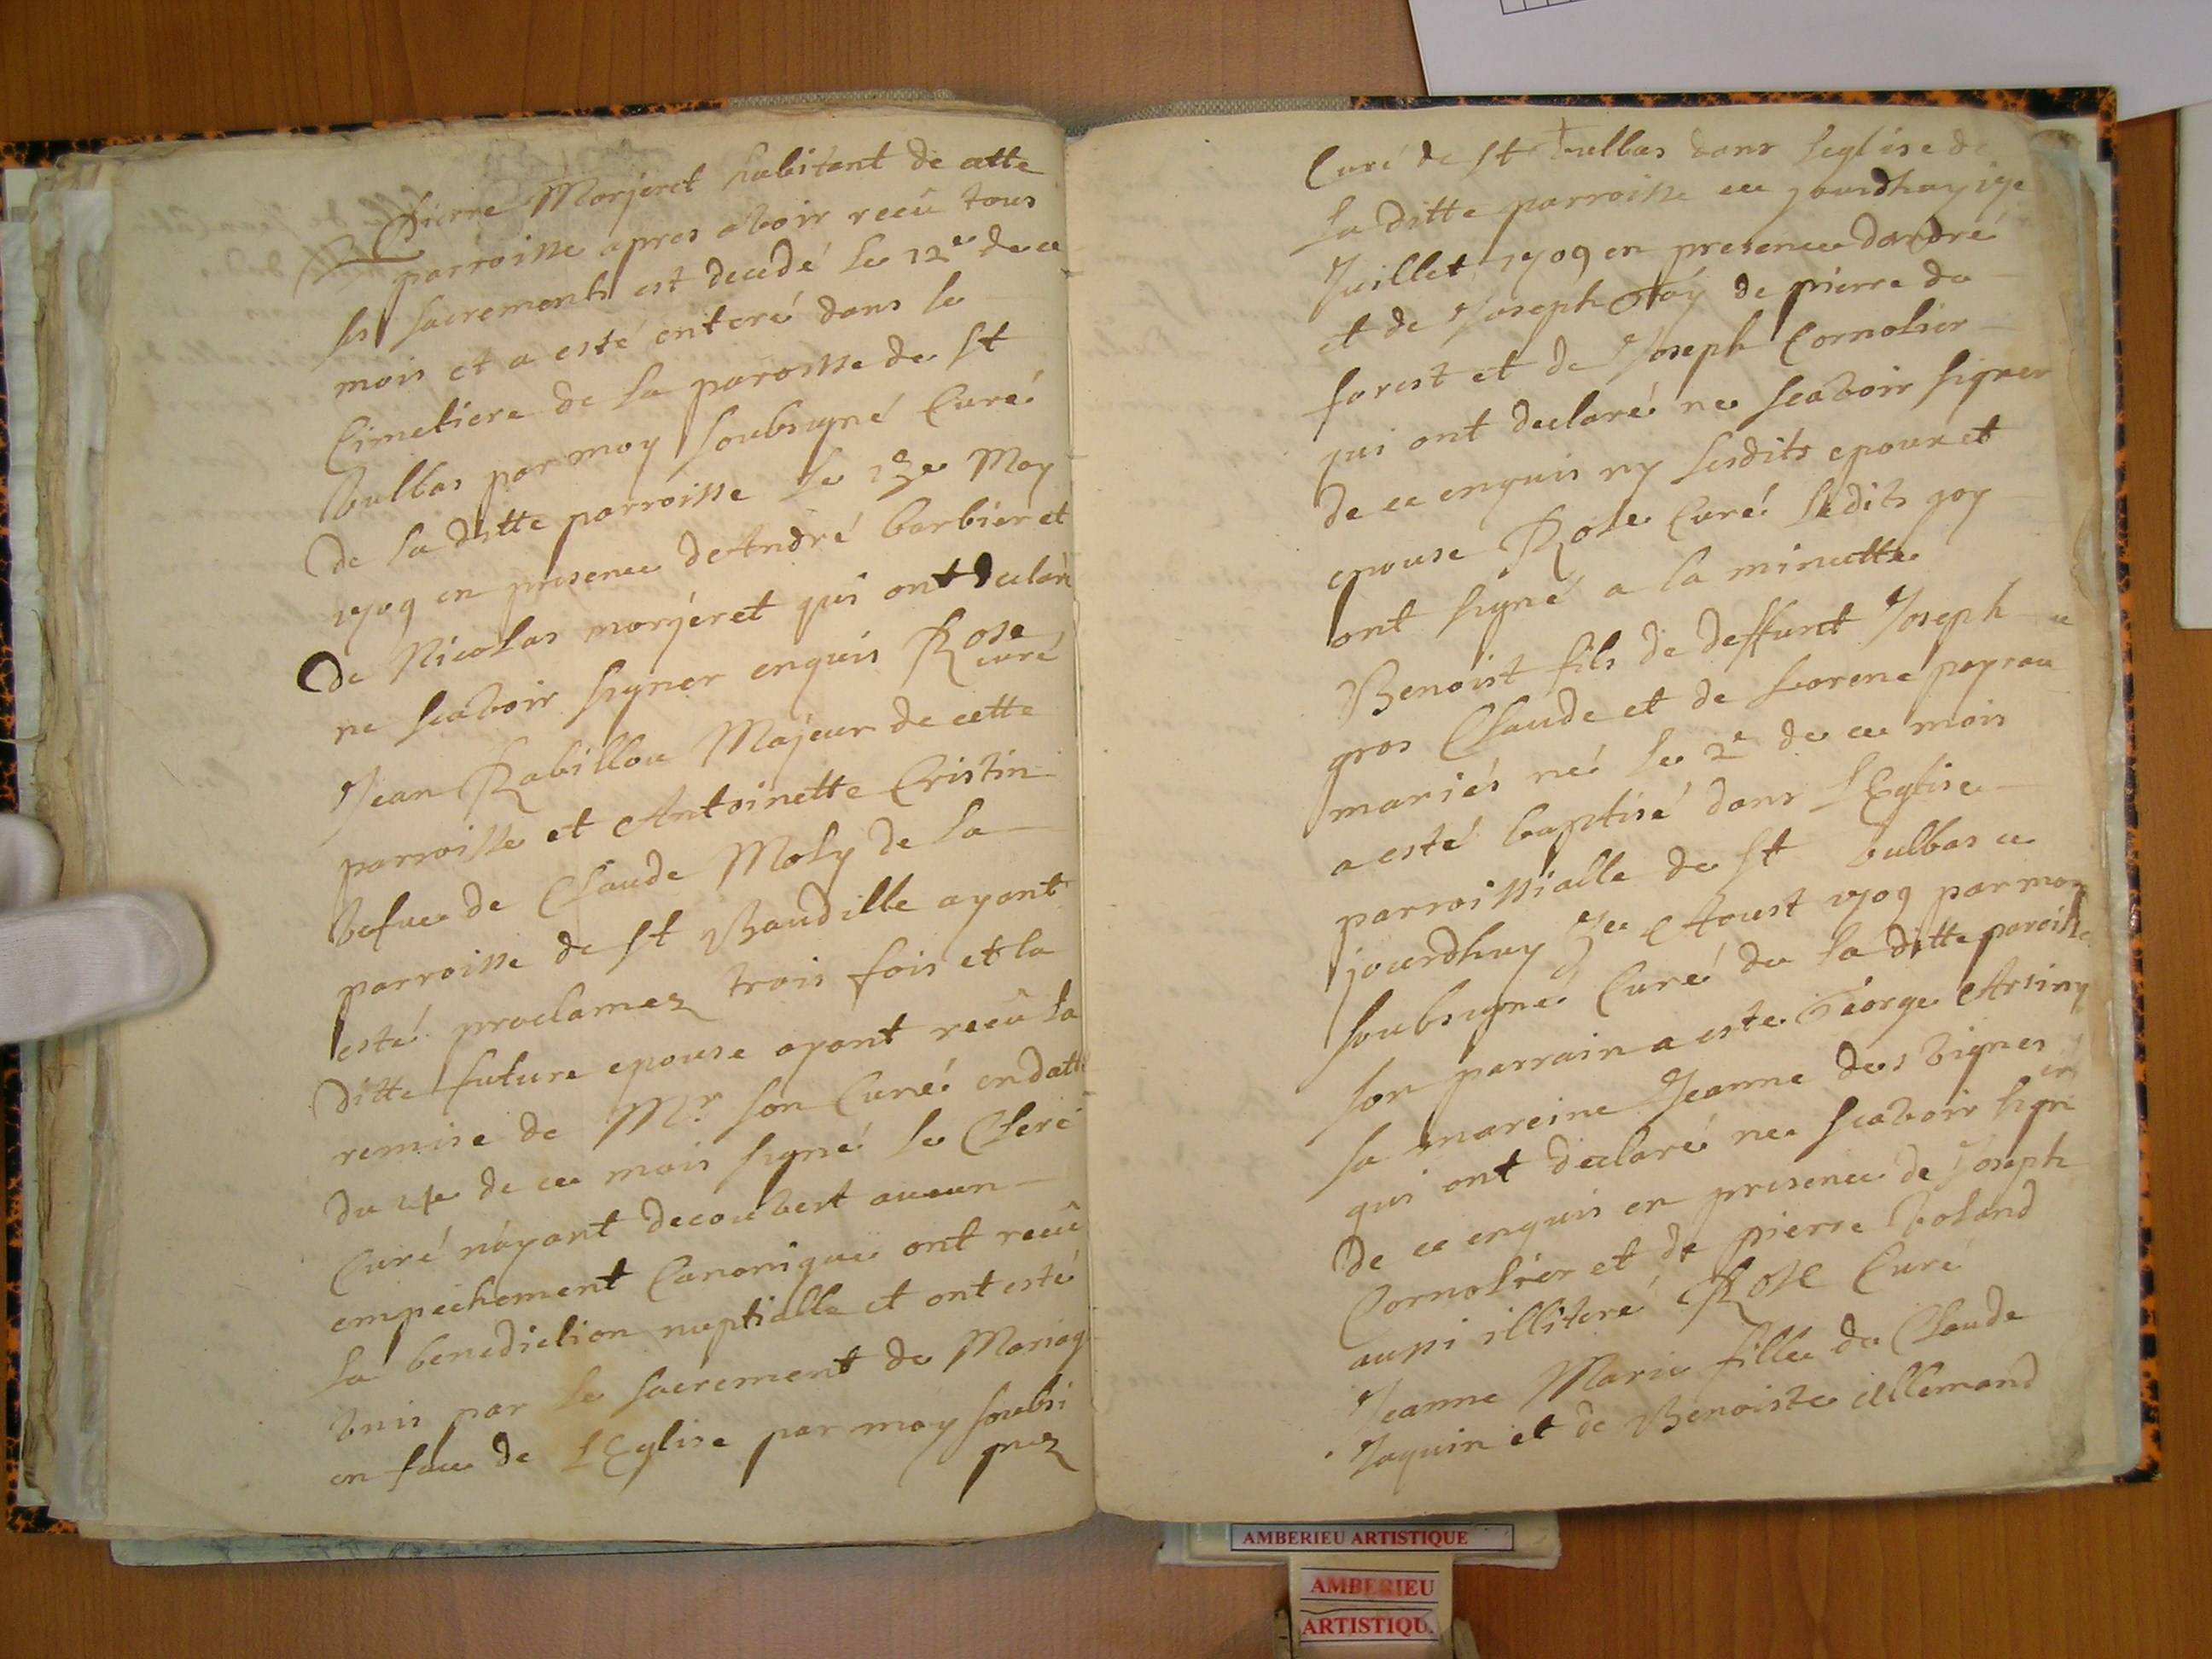 Pierre Morjeret habitant de cette
parroisse apres avoir receû tous
les sacrements est decedé le 12e de ce
mois et a esté enteré dans le
Cimetiere de la paroisse de St
Vulbas par moy soubsigné Curé
de la ditte parroisse le 13e May
1709 en presence de André barbier et
de Nicolas morjeret qui ont declaré
ne scavoir signer enquis Rose
curé
Jean Rabillou Majeur de cette
parroisse et Antoinette Cristin
vefue de Claude Moly de la
parroisse de St Baudille ayant
esté proclamez trois fois et la
ditte future epouse ayant receû la
remise de Mr son Curé en datte
du de ce mois signé le Clerc
Curé n'ayant decouvert aucun
empechement Canonique ont receû
la benediction nuptialle et ont esté
vnis par le sacrement de Mariag
en face de LEglise par moy soubsi
gnez
Curé de St Vulbas dans leglise de
la ditte parroisse ce jourdhuy
Juillet 1709 en presence dandré
et de Joseph de pierre du
forest et de Joseph Cornolier
qui ont declaré ne scavoir signer
de ce enquis ny lesdits epoux et
epouse Rose Curé lesdits joy
ont signé a la minutte
Benoist fils de deffunt Joseph
gros Claude et de Lorene
mariés né le 2e de ce mois
a esté baptisé dans LEglise
parroissialle de St Vulbas ce
jourdhuy 3e Aoust 1709 par moy
soubsigné Curé de la ditte paroisse
son parrain a este George Arsiny
sa mareine Jeanne des vignes
qui ont declaré ne scavoir signer
de ce enquis en presence de Joseph
Cornolier et de pierre Voland
aussi illiteré Rose Curé
Jeanne Marie fille de Claude
Jaquin et de Benoiste allemand
AMBERIEU ARTISTIQUE
AMBERIEU
ARTISTIQU